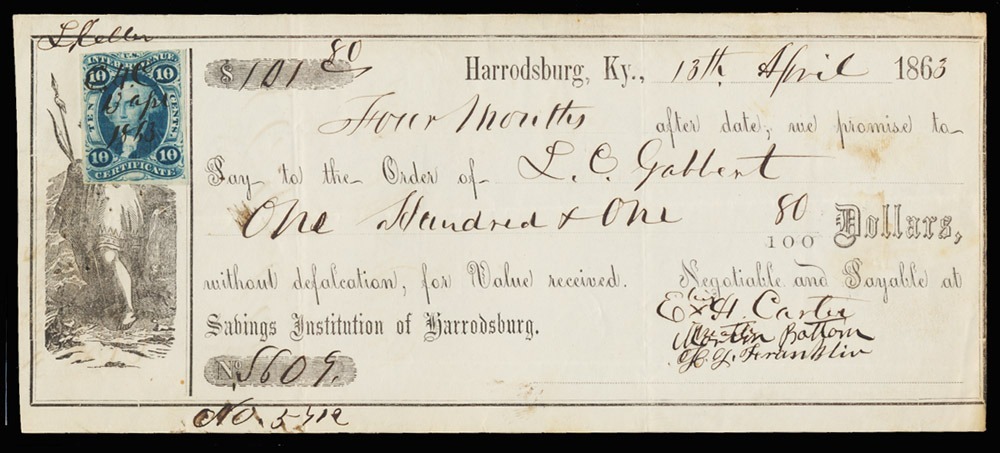 U.S.
INTER. REVENUE
10 10
TEN CENTS
1863
10 10
CERTIFICATE
$ 101 80
Harrodsburg, Ky., 13th April 1863
Four Months after date, we promise to
Pay to the Order of L. C. Gabbert
One Hundred & One 80/100 Dollars,
without defalcation, for Value received. Negotiable and Payable at
Savings Institution of Harrodsburg.
E H. Carter
Martin Bottom
H. Y. Franklin
No. 5609.
No. 5